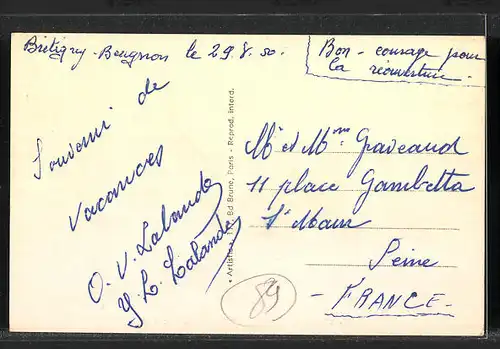 Brétigny-Beugnon le 29.8.50.
Bon - courage pour
la réouverture.
Souvenir de
Vacances
O. V. Lalande
Y. L. Lalande
Bd Brune, Paris - Reprod. interd.
Mr et Mme Graveaud
11 place Gambetta
St Maur
Seine
- FRANCE -
89